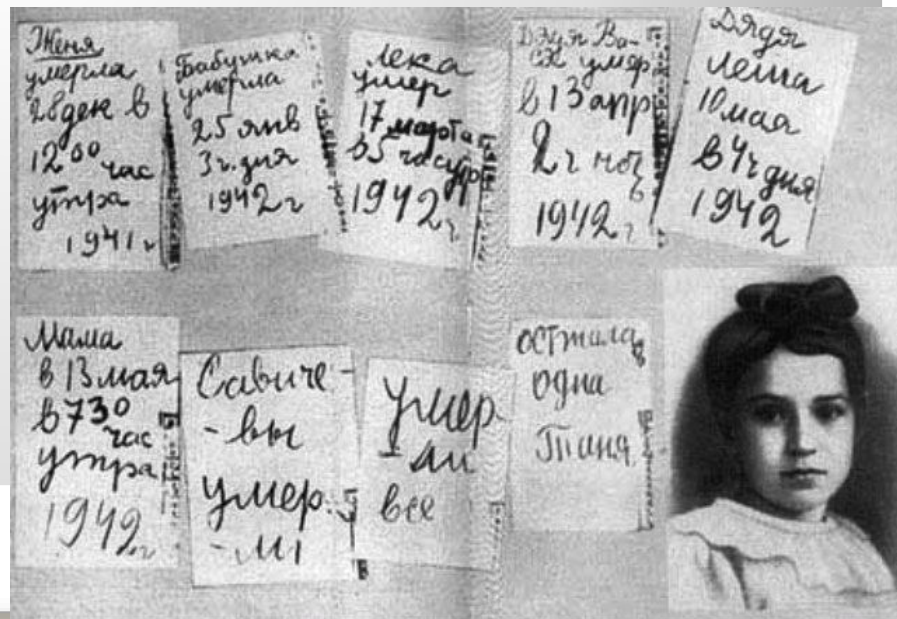 Женя
умерла
28 дек в
12 00 час
утра
1941 г
Бабушка
умерла
25 янв
3 ч. дня
1942 г
Лека
умер
17 марта
в 5 час утр
1942 г
Дядя Ва-
ся умер
в 13 апр
2 ч ноч
1942 г
Дядя
Леша
10 мая
в 4 ч дня
1942
Мама
в 13 мая
в 730
час
утра
1942 г
Савиче-
-вы
умер-
-ли
Умер
-ли
все
Осталась
одна
Таня